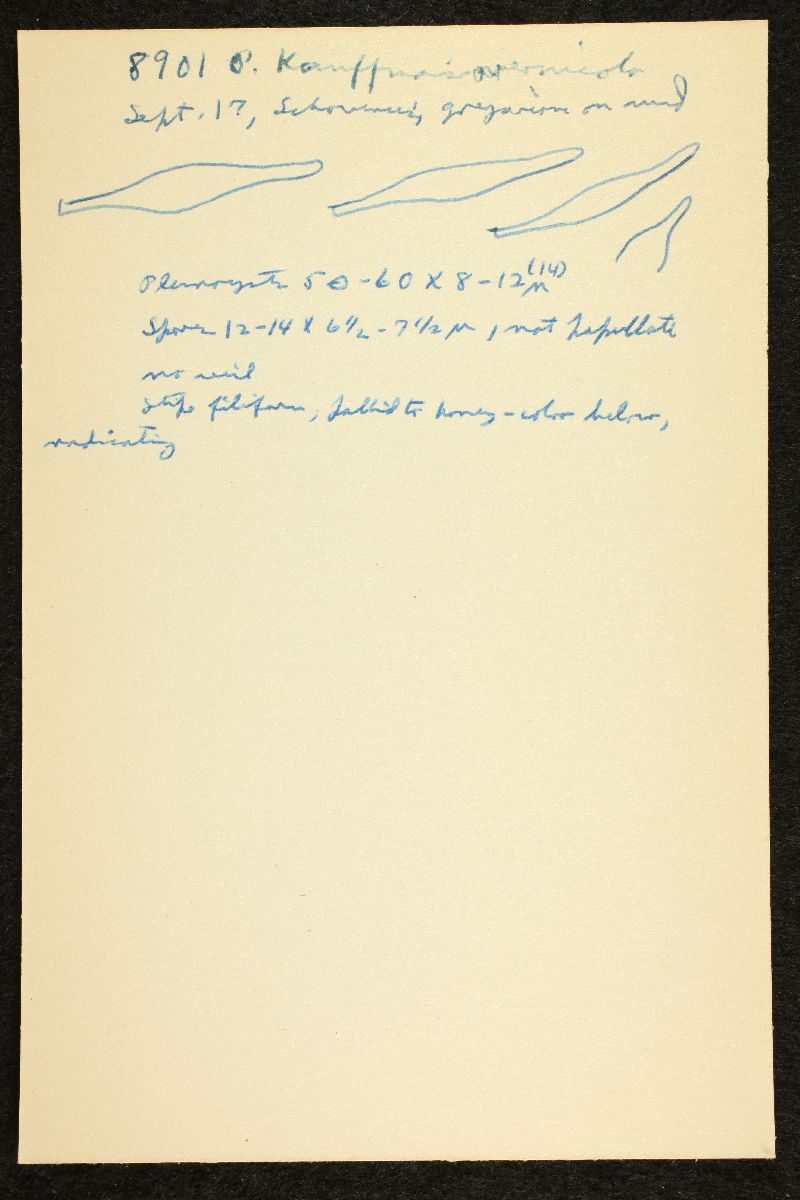 8901 P.
Sept. 17, gregarious on mud
Pleurocysts 50-60 X 8-12(14) µ
Spores 12-14 X 6 1/2 - 7 1/2 µ, not papillate
no veil
Stipe filiform, pallid to honey-color below,
radicating